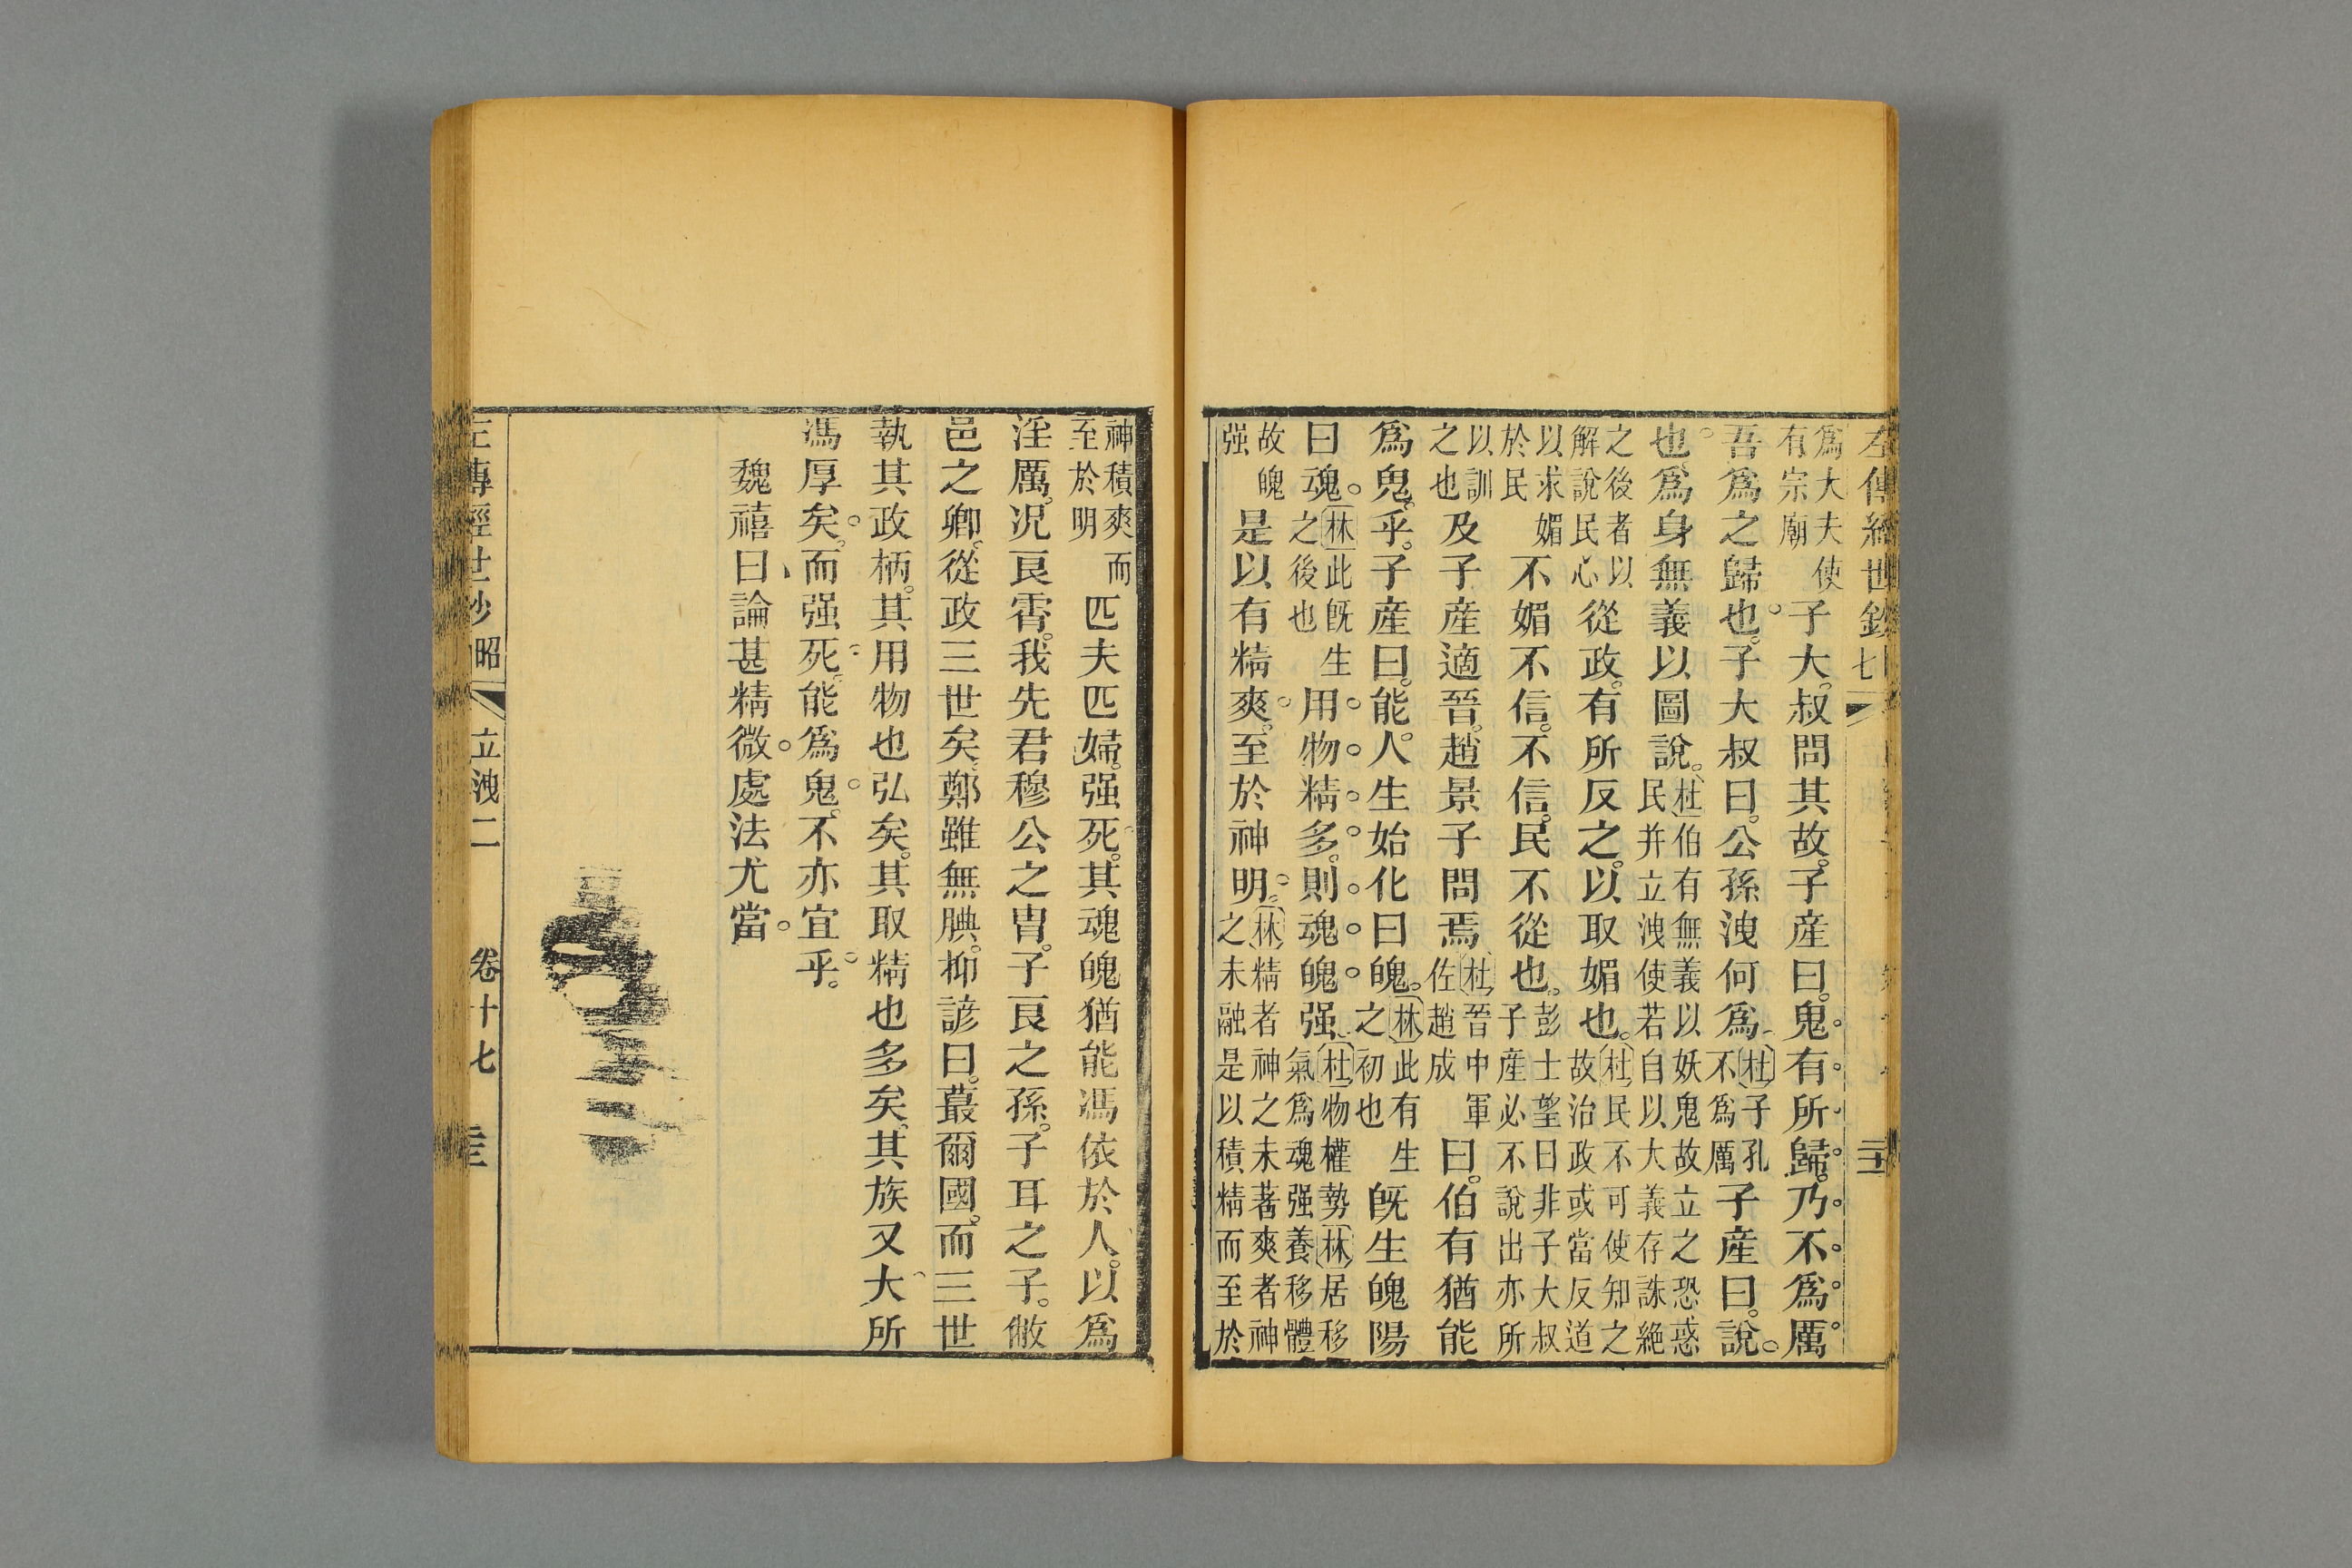 左傳經世鈔 七
爲大夫使有宗廟子大叔問其故。子産曰。鬼有所歸。乃不爲厲。
吾爲之歸也。子大叔曰。公孫洩何爲。杜子孔不爲厲子産曰。說
也。爲身無義以圖說。杜伯有無義以妖鬼故立之恐惑民并立洩使若自以大義存誅絶
之後者以解說民心從政。有所反之。以取媚也。杜民不可使知之故治政或當反道
以求媚於民不媚不信。不信。民不從也。彭士望曰非子大叔子産必不說出亦所
以訓之也及子産適晉。趙景子問焉。杜晉中軍佐趙成曰。伯有猶能
爲鬼乎。子産曰。能。人生始化曰魄。林此有生之初也旣生魄陽
曰魂。林此旣生之後也用物精多。則魂魄强。杜物權勢林居移氣爲魂强養移體
故魄强是以有精爽。至於神明。林精者神之未著爽者神之未融是以積精而至於
神積爽而至於明匹夫匹婦。强死。其魂魄猶能馮依於人。以爲
淫厲。況良霄。我先君穆公之冑。子良之孫。子耳之子。敝
邑之卿。從政三世矣。鄭雖無腆。抑諺曰。蕞爾國。而三世
執其政柄。其用物也弘矣。其取精也多矣。其族又大所
馮厚矣。而强死。能爲鬼。不亦宜乎。
魏禧曰論甚精微。處法尤當。
左傳經世鈔 昭 立洩二 卷十七